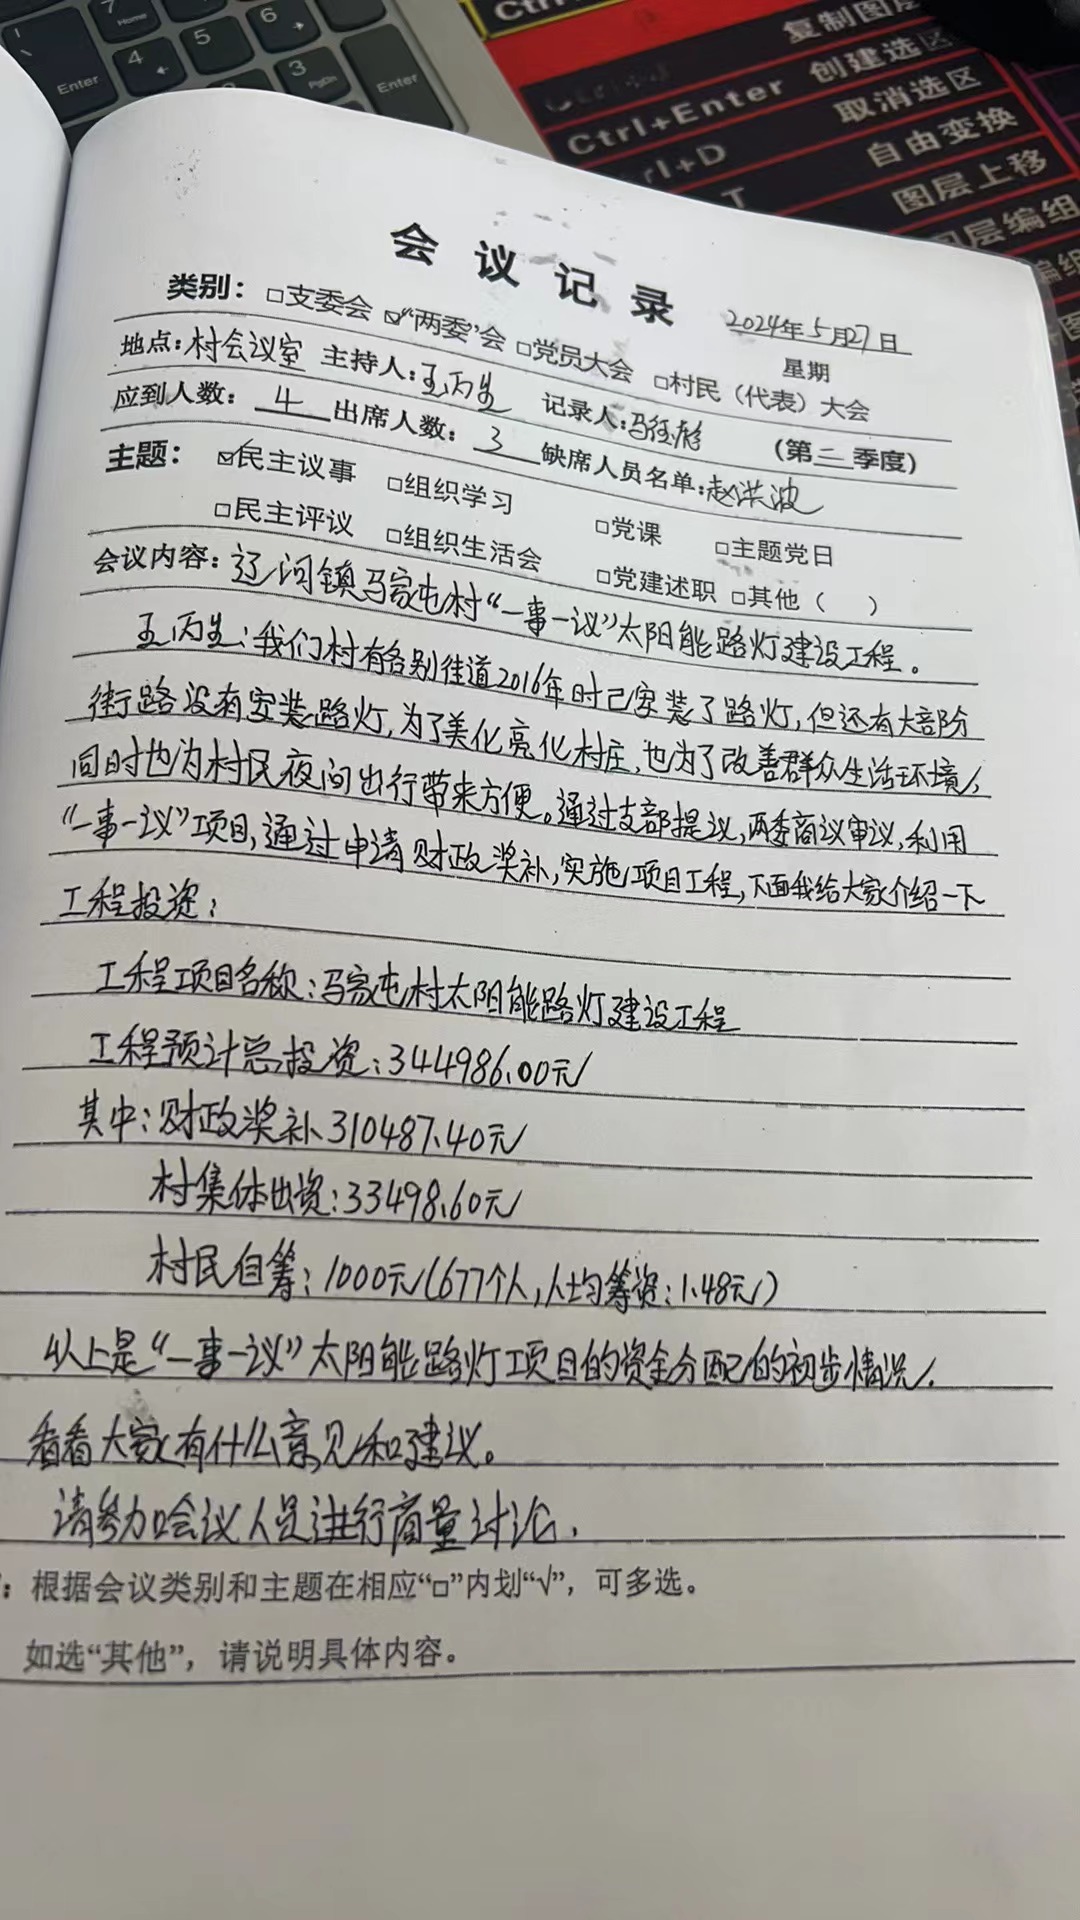 7
Home
5
6
4
3
PgDn
Enter
Enter
Ctrl+
复制图层
Ctrl+Enter 创建选区
Ctrl+D 取消选区
T 自由变换
图层上移
图层编组
会议记录
2024年5月27日
类别：□支委会 ☑“两委”会 □党员大会 □村民（代表）大会
星期
地点：村会议室 主持人：王丙生 记录人：马红彪 （第二季度）
应到人数：4 出席人数：3 缺席人员名单：赵洪波
主题：☑民主议事 □组织学习 □党课 □主题党日
□民主评议 □组织生活会 □党建述职 □其他（ ）
会议内容：辽河镇马家屯村“一事一议”太阳能路灯建设工程。
王丙生：我们村有各别街道2016年时已安装了路灯，但还有大部分
街路没有安装路灯，为了美化亮化村庄，也为了改善群众生活环境，
同时也为村民夜间出行带来方便。通过支部提议，两委商议审议，利用
“一事一议”项目，通过申请财政奖补，实施项目工程，下面我给大家介绍一下
工程投资：
工程项目名称：马家屯村太阳能路灯建设工程
工程预计总投资：344986.00元
其中：财政奖补310487.40元
村集体出资：33498.60元
村民自筹：1000元（677个人，人均筹资：1.48元）
以上是“一事一议”太阳能路灯项目的资金分配的初步情况，
看看大家有什么意见和建议。
请参加会议人员进行商量讨论，
：根据会议类别和主题在相应“□”内划“√”，可多选。
如选“其他”，请说明具体内容。